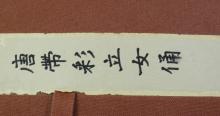 唐帶彩立女俑